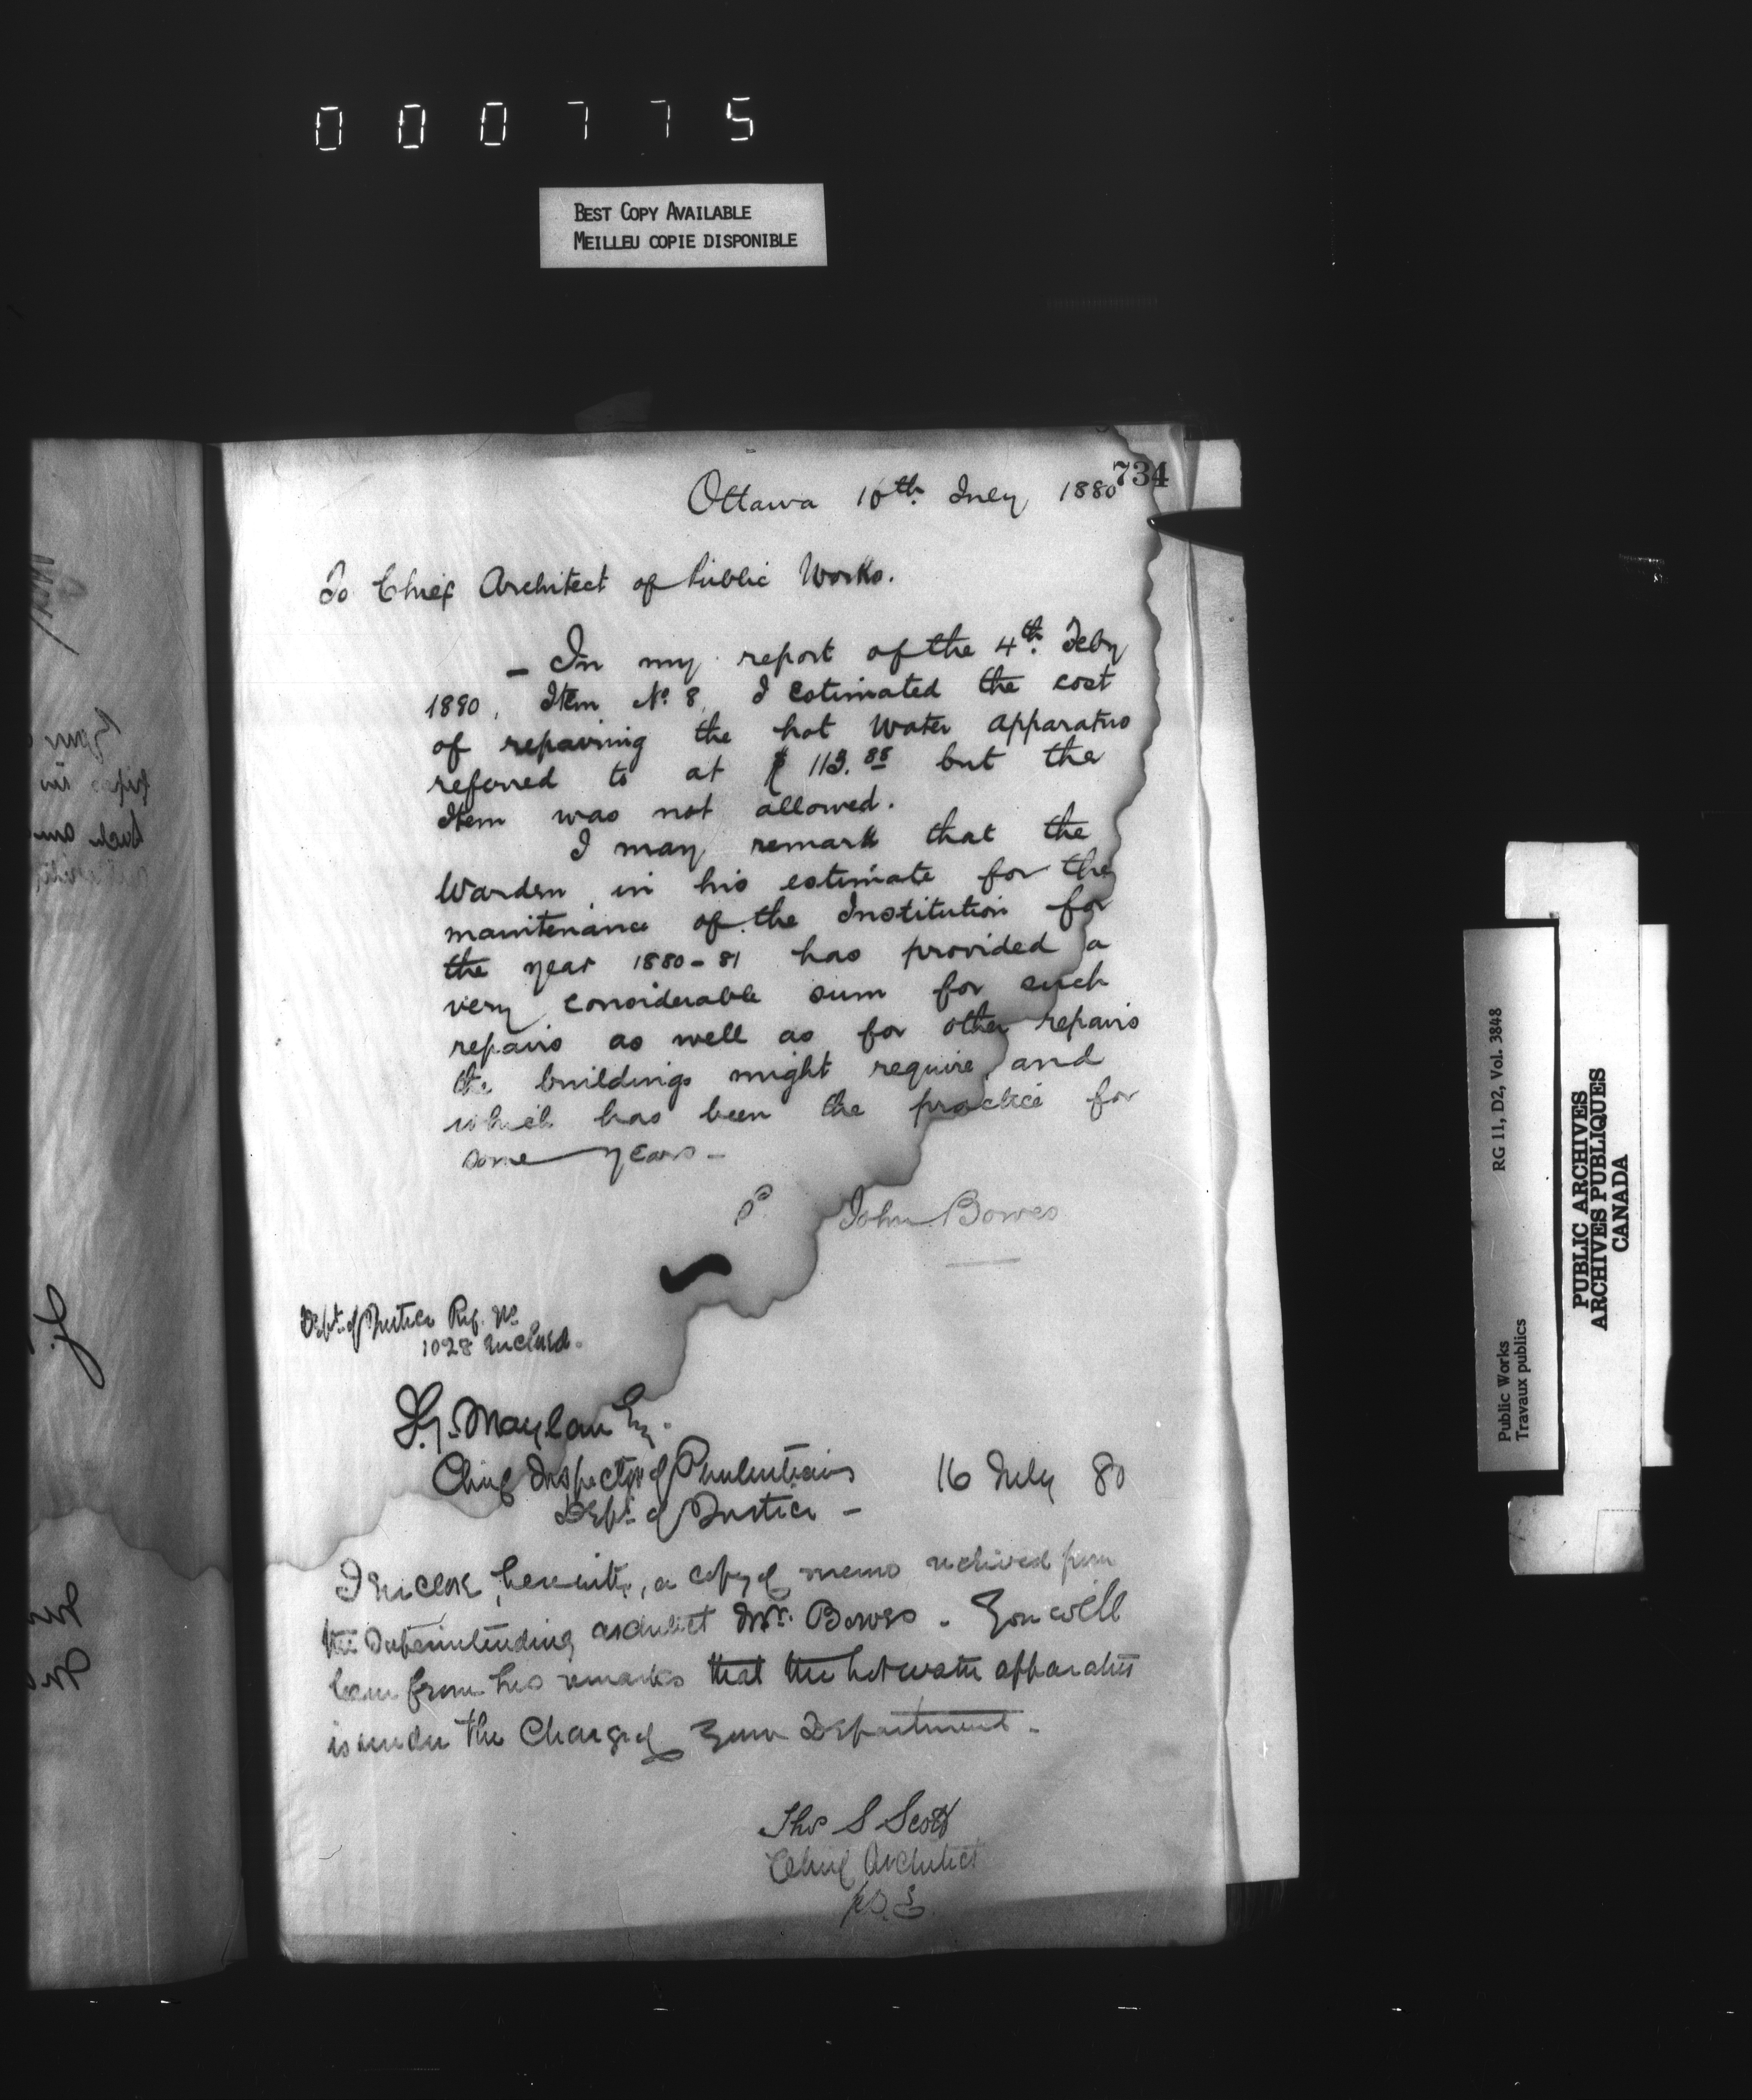 000775
BEST COPY AVAILABLE
MEILLEU COPIE DISPONIBLE
734
Ottawa 16th July 1880
To Chief Architect of Public Works.
- In my report of the 4th. Feby
1880, Item No. 8, I estimated the cost
of repairing the hot water apparatus
referred to at $ 113.88 but the
Item was not allowed.
I may remark that the
Warden in his estimate for the
maintenance of the Institution for
the year 1880-81 has provided a
very considerable sum for such
repairs as well as for other repairs
the buildings might require, and
which has been the practice for
some years -
John Bowes
Dept. of Justice Ref. No
1028 enclosed.
J.G. Moylan Esq.
Chief Inspector of Penitentiaries 16 July 80
Dept. of Justice -
I enclose, herewith, a copy of memo received from
the Superintending architect Mr. Bowes. You will
learn from his remarks that the hot water apparatus
is under the Charge of your Department.
Thos S Scott
Chief Architect
RG 11, D2, Vol. 3848
Public Works
Travaux publics
PUBLIC ARCHIVES
ARCHIVES PUBLIQUES
CANADA